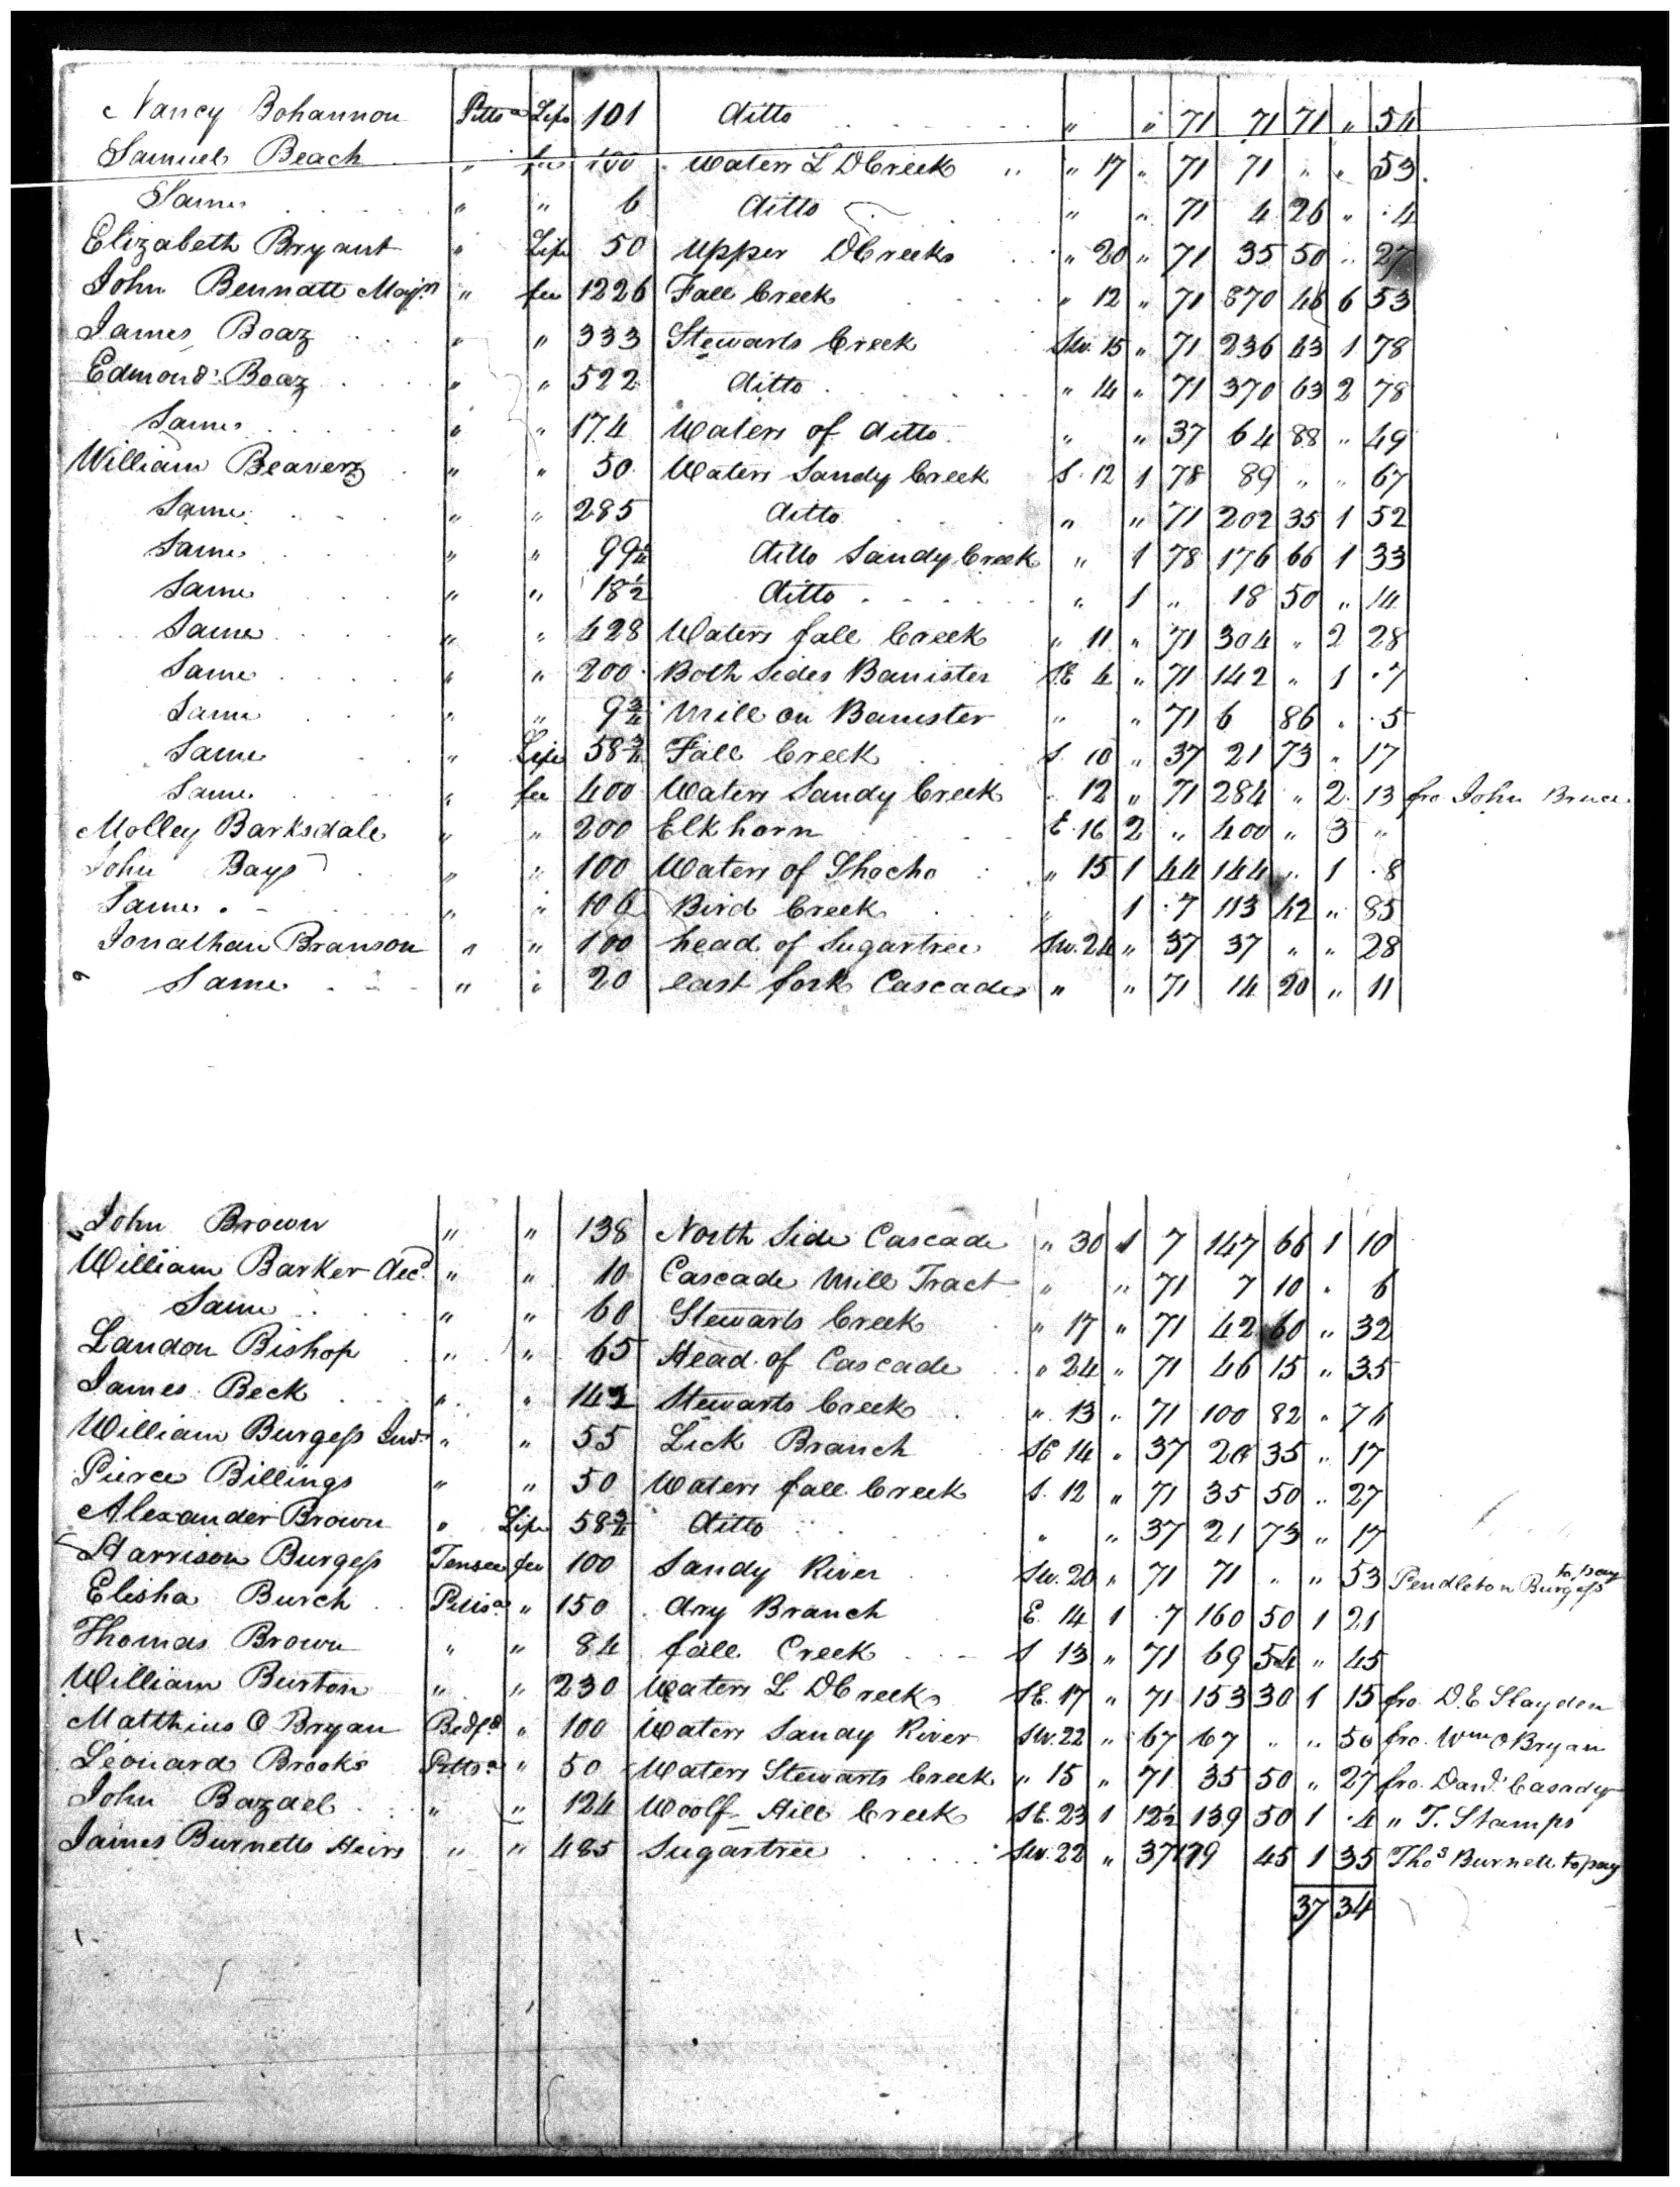 Nancy Bohannon Pittsa Life 101 ditto " " 71 71 71 " 54
Samuel Beach " fee 100 Waters L DCreek " 17 " 71 71 " " 53
Same " " 6 ditto " " 71 4 26 " .4
Elizabeth Bryant " Life 50 Upper DCreek " 20 " 71 35 50 " 27
John Bennatt Majr " fee 1226 Fall Creek " 12 " 71 870 46 6 53
James Boaz " " 333 Stewarts Creek Sw. 15 " 71 236 43 1 78
Edmond Boaz " " 522 ditto " 14 " 71 370 63 2 78
Same " " 174 Waters of ditto " " 37 64 88 " 49
William Beaverz " " 50 Waters Sandy Creek S. 12 1 78 89 " " 67
Same " " 285 ditto " " 71 202 35 1 52
Same " " 99¼ ditto Sandy Creek " 1 78 176 66 1 33
Same " " 18½ ditto " 1 " 18 50 " 14
Same " " 428 Waters fall Creek " 11 " 71 304 " 2 28
Same " " 200 Both Sides Banister SE 4 " 71 142 " 1 .7
Same " " 9¾ Mill on Banister " " 71 6 86 " .5
Same " Life 58¾ Fall Creek S. 10 " 37 21 73 " 17
Same " fee 400 Waters Sandy Creek " 12 " 71 284 " 2 13 fro. John Bruce
Molley Barksdale " " 200 Elkhorn E. 16 2 " 400 " 3 "
John Bays " " 100 Waters of Shocho " 15 1 44 144 " 1 .8
Same " " 106 Bird Creek " 1 .7 113 42 " 85
Jonathan Branson " " 100 head of Sugartree Sw. 24 " 37 37 " " 28
Same " " 20 east fork Cascade " " 71 14 20 " 11
John Brown " " 138 North Side Cascade " 30 1 7 147 66 1 10
William Barker decd " " 10 Cascade Mill Tract " " 71 7 10 " 6
Same " " 60 Stewarts Creek " 17 " 71 42 60 " 32
Landon Bishop " " 65 Head of Cascade " 24 " 71 46 15 " 35
James Beck " " 142 Stewarts Creek " 13 " 71 100 82 " 76
William Burgess " " 55 Lick Branch SE 14 " 37 20 35 " 17
Pierce Billings " " 50 Waters fall Creek S. 12 " 71 35 50 " 27
Alexander Brown " Life 58¾ ditto " " 37 21 73 " 17
Harrison Burgess Tensee fee 100 Sandy River Sw. 20 " 71 71 " " 53 Pendleton Burgess to pay
Elisha Burch Pittsa " 150 dry Branch E. 14 1 .7 160 50 1 21
Thomas Brown " " 84 fall Creek S 13 " 71 69 54 " 45
William Burton " " 230 Waters L DCreek SE. 17 " 71 153 30 1 15 fro. D. E Slayden
Matthius O Bryan Bedfd " 100 Waters Sandy River Sw. 22 " 67 67 " " 50 fro. Wm O Bryan
Leonard Brooks Pittsa " 50 Waters Stewarts Creek " 15 " 71 35 50 " 27 fro. Danl. Casady
John Bazael " " 124 Woolf Hill Creek SE. 23 1 12½ 139 50 1 .4 " T. Stamps
James Burnetts Heirs " " 485 Sugartree Sw. 22 " 37 179 45 1 35 Thos Burnett to pay
37 34